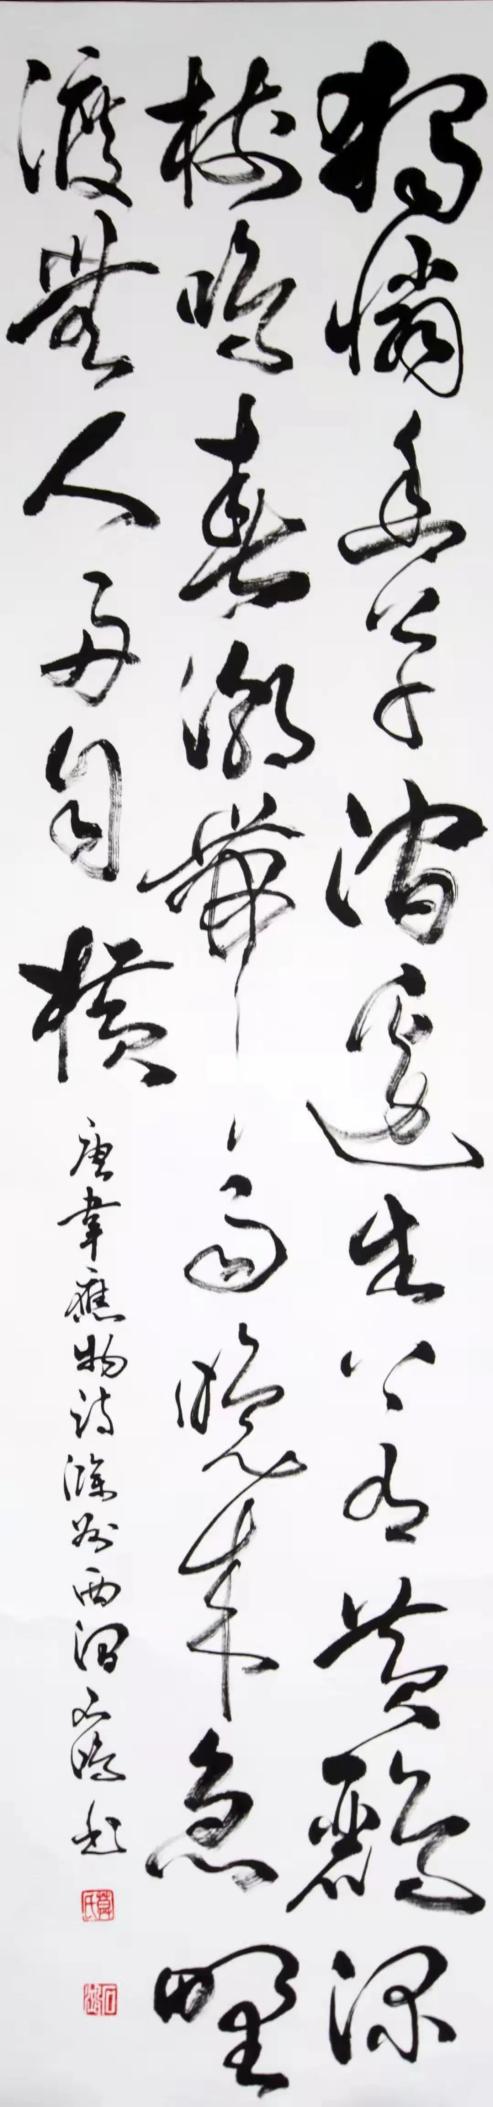 獨憐幽草澗邊生上有黃鸝深
樹鳴春潮帶雨晚來急野
渡無人舟自橫
唐韋應物詩滁州西澗